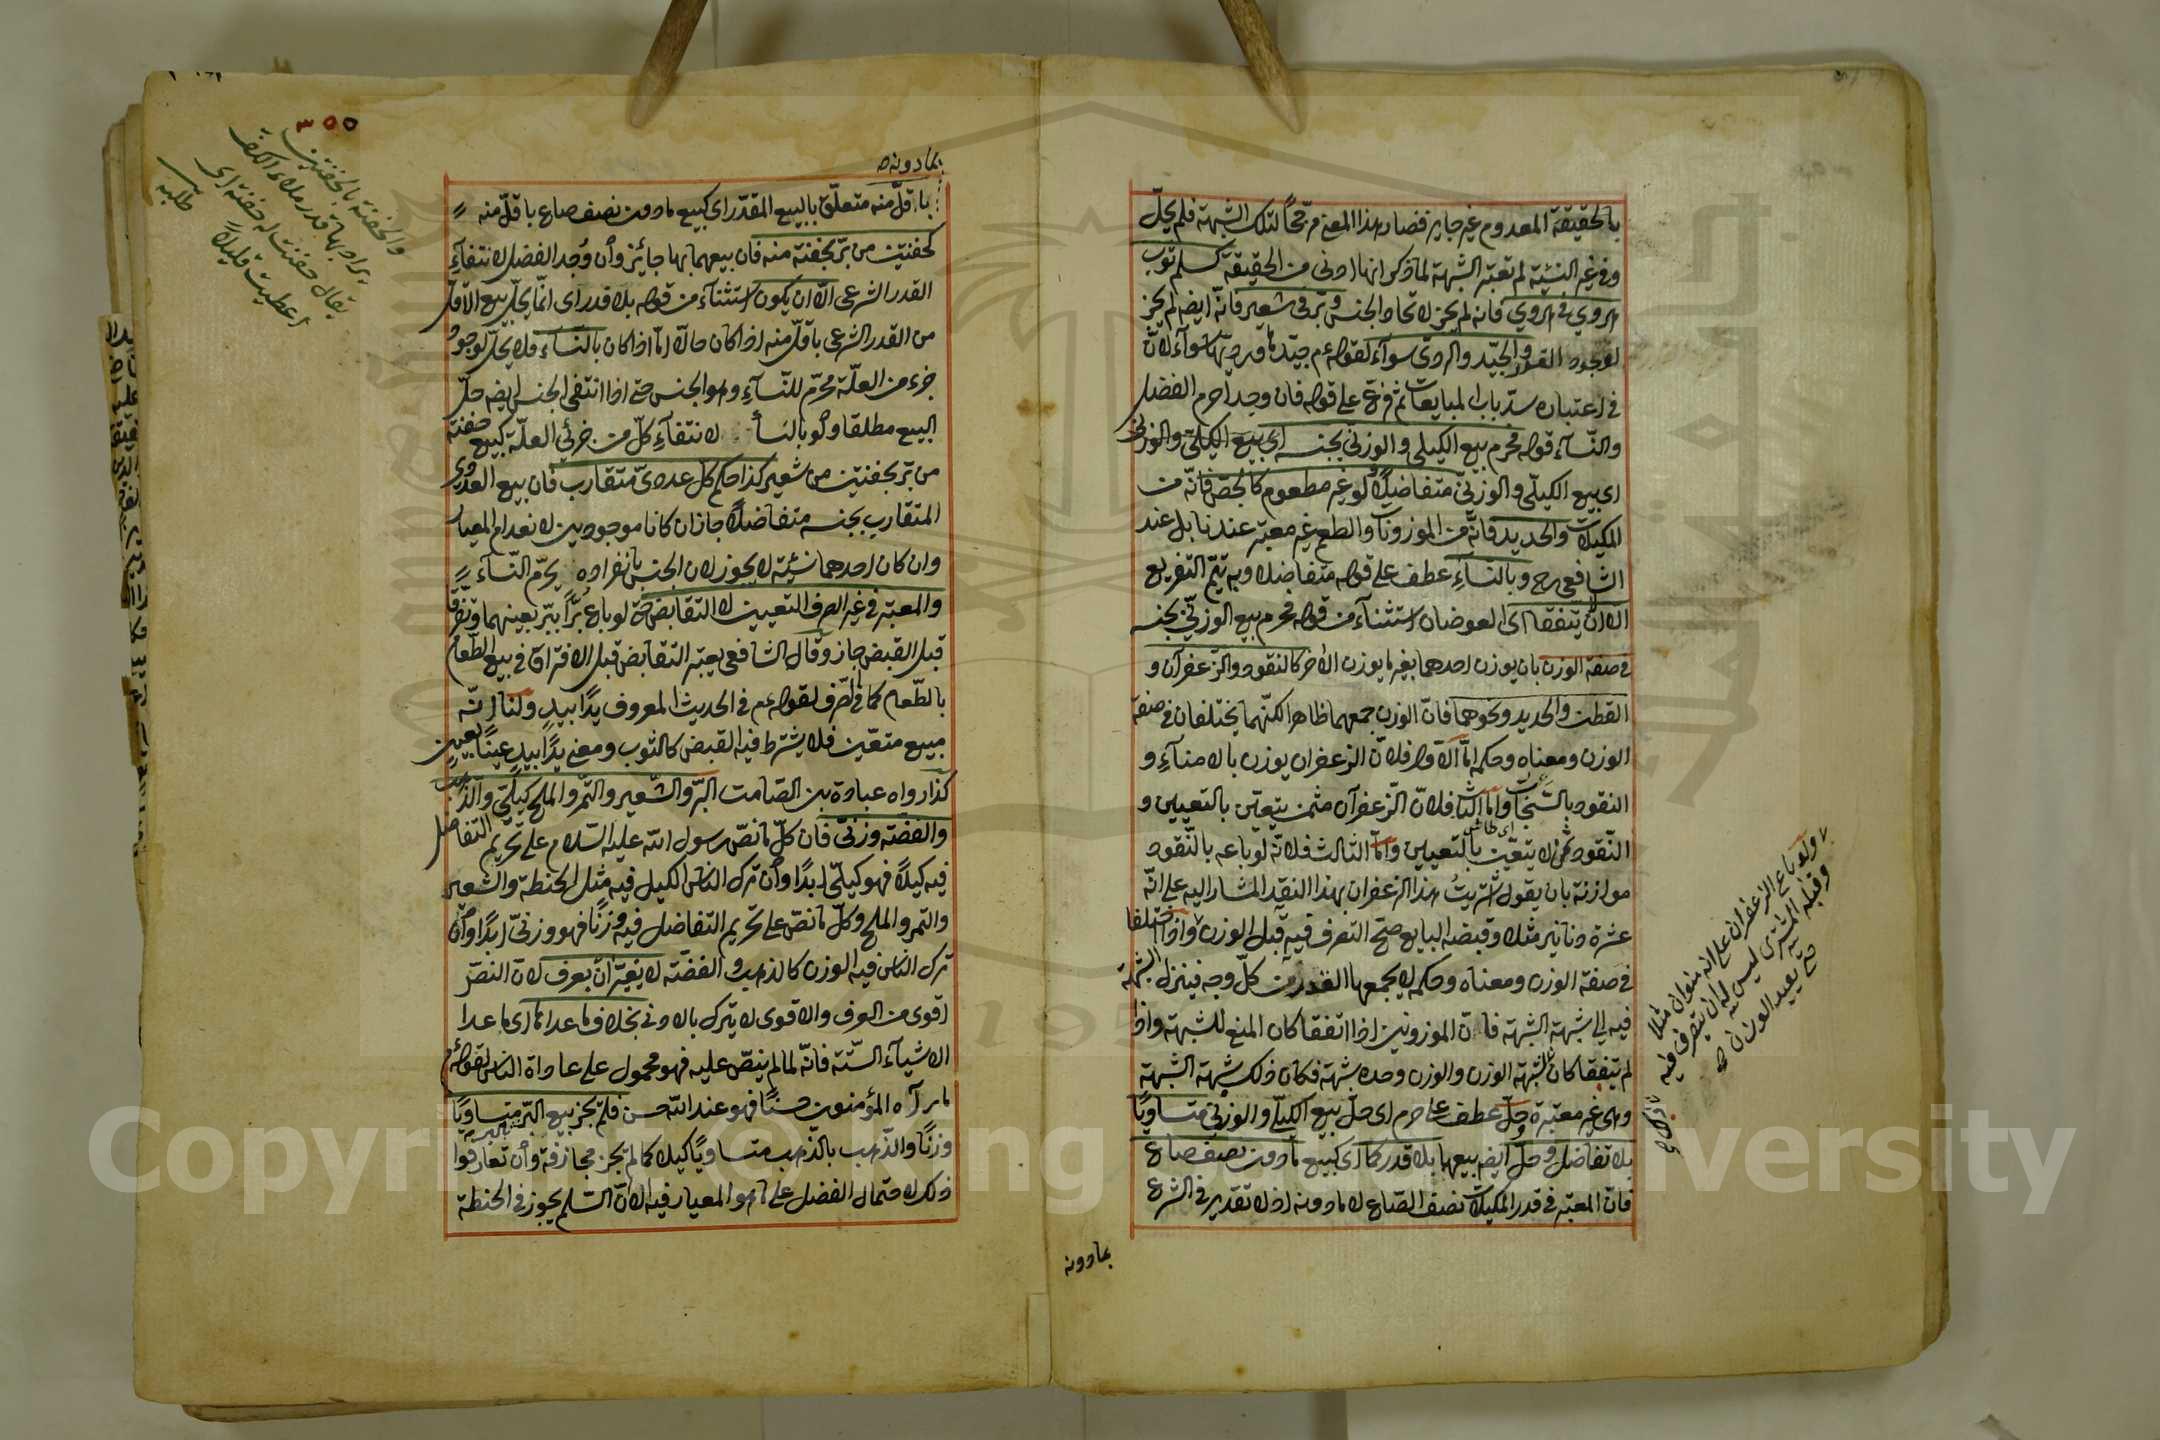 بالحقيقة المعدوم غير جايز فصار هذا المعنى مرجحًا لتلك الشبهة فلم يحل
وفي غير النسئية لم تعتبر الشبهة لما ذكر انها ادنى من الحقيقة كسلم ثوب
هروي في هروي فانه لم يجز لاتحاد الجنس وبر في شعير فانه ايضه لم يجز
لوجود القدر والجيد والردى سوآء لقوله عم جيدها ورديها سوآء لان
في اعتباره سد باب المبايعات ثم فرع على قوله فان وجدا حرم الفضل
والنسآء قوله فحرم بيع الكيلي والوزني بجنسه اى بيع الكيلى والوزنى
اى بيع الكيلى والوزنى متفاضلًا ولو غير مطعوم كالجص فانه من
المكيلات والحديد فانه من الموزونات والطعم غير معتبر عندنا بل عند
الشافعى رح وبالنسآء عطف على قوله متفاضلا وبه يتم التفريع
الا ان يتفقا اى العوضان استثنآء من قوله فحرم بيع الوزنى بجنسه
في صفة الوزن بان يوزن احدهما بغير ما يوزن الآخر كالنقود والزعفران و
القطن والحديد ونحوهما فان الوزن جمعهما ظاهرا لكنهما يختلفان في صفة
الوزن ومعناه وحكمه اما الاول فلان الزعفران يوزن بالامنآء و
النقود بالسنجات واما الثانى فلان الزعفران مثمن يتعين بالتعيين و
النقود ثمن لا يتعين بالتعيين واما الثالث فلانه لو باعه بالنقود
موازنة بان يقول اشتريت هذا الزعفران بهذا النقد المشار اليه على انه
عشرة دنانير مثلا وقبضه البايع صح التصرف فيه قبل الوزن واذا اختلفا
في صفة الوزن ومعناه وحكمه لا يجمعها القدر من كل وجه فينزل الشبهة
فيه الى شبهة الشبهة فان الموزونين اذا اتفقا كان المنع للشبهة واذا
لم يتفقا كان شبهة الوزن والوزن وحده شبهة فكان ذلك شبهة الشبهة
وهى غير معتبرة وحل عطف على حرم اى حل بيع الكيلى والوزنى متساويًا
بلا تفاضل وحل ايضه بيعها بلا قدر كما اى كبيع ما دون نصف صاع
فان المعتبر في قدر المكيلات نصف الصاع لا ما دونه اذ لا تقدير في الشرع
بما دونه
ولو باع الزعفران على انه منوان مثلا
وقبله المشترى ليس له ان يتصرف فيه
حتى يعيد الوزن صح
٣٥٥
بما دونه صح
باقل منه متعلق بالبيع المقدر اى كبيع ما دون نصف صاع باقل منه
كحفنتين من بر بحفنة منه فان بيعهما بها جائز وان وجد الفضل لانتفآء
القدر الشرعى الا ان يكون استثنآء من قوله بلا قدر اى انما يحل بيع الاقل
من القدر الشرعى باقل منه اذا كان حالًا اما اذا كان بالنسآء فلا يحل لوجود
جزء من العلة محرم للنسآء وهو الجنس حتى اذا انتفى الجنس ايضه حل
البيع مطلقا ولو بالنسأ لانتفآء كل من جزئى العلة كبيع حفنة
من بر بحفنتين من شعير كذا حكم كل عددى متقارب فان بيع العددى
المتقارب بجنسه متفاضلًا جاز ان كانا موجودين لانعدام المعيار
وان كان احدهما نسئية لا يجوز لان الجنس بانفراده يحرم النسآء
والمعتبر في غير الصرف التعيين لا التقابض حتى لو باع برًا ببر بعينهما وتفرقا
قبل القبض جاز وقال الشافعى يعتبر التقابض قبل الافتراق في بيع الطعام
بالطعام كما في الصرف لقوله عم في الحديث المعروف يدًا بيد ولنا انه
مبيع متعين فلا يشترط فيه القبض كالثوب ومعنى يدًا بيد عينًا بعين
كذا رواه عبادة بن الصامت البر والشعير والتمر والملح كيلى والذهب
والفضة وزنى فان كل ما نص رسول الله عليه السلام على تحريم التفاضل
فيه كيلًا فهو كيلى ابدًا وان ترك الناس الكيل فيه مثل الحنطة والشعير
والتمر والملح وكل ما نص على تحريم التفاضل فيه وزنًا فهو وزنى ابدًا وان
ترك الناس فيه الوزن كالذهب والفضة لا يغير ان بعرف لان النص
اقوى من العرف والاقوى لا يترك بالادنى بخلاف ما عداها اى ما عدا
الاشيآء الستة فانه لما لم ينص عليه فهو محمول على عادات الناس لقوله عم
ما رآه المؤمنون حسنًا فهو عند الله حسن فلم يجز بيع البر متساويًا
وزنًا والذهب بالذهب متساويًا كيلا كما لم يجز مجازفة وان تعارفوا
ذلك لاحتمال الفضل على ما هو المعيار فيه الا ان السلم يجوز في الحنطة
والحفنة بالحفنتين
يراد بها قدر ملاء الكف
يقال حفنت له حفنة اى
اعطيت قليلًا
طلبه
Copyright © King Saud University
1957